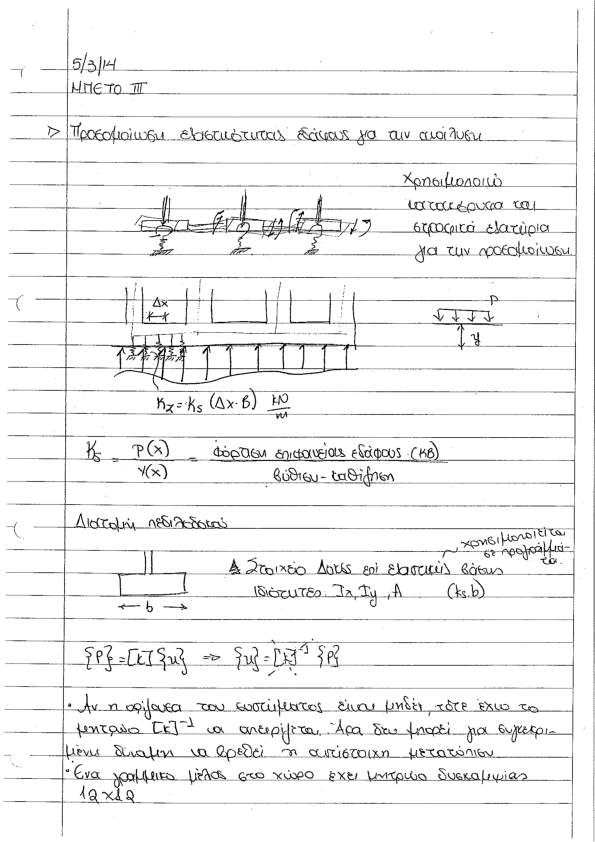 5/3/14
ΜΠΕΤΟ ΙΙΙ
▷ Προσομοίωση ελαστικότητας εδάφους για την ανάλυση
Χρησιμοποιώ
κατακόρυφα και
στροφικά ελατήρια
για την προσομοίωση
Δx
P
y
Kz = Ks (Δx·B) kN/m
Ks = P(x)/Y(x) = φόρτιση επιφανείας εδάφους (KB)/βύθιση-καθίζηση
Διατομή πεδιλοδοκού
χρησιμοποιείται
σε προγράμμα-
τα.
Στοιχείο Δοκός επί ελαστικής βάσης
ιδιότητες: Ix, Iy, A (ks.b)
b
{P}=[K]{u} => {u}=[K]⁻¹{P}
• Αν η ορίζουσα του συστήματος είναι μηδέν, τότε έχω το
μητρώο [K]⁻¹ να απειρίζεται. Άρα δεν μπορεί για συγκεκρι-
μένη δύναμη να βρεθεί η αντίστοιχη μετατόπιση
• Ένα γραμμικό μέλος στο χώρο έχει μητρώο δυσκαμψίας
12x12